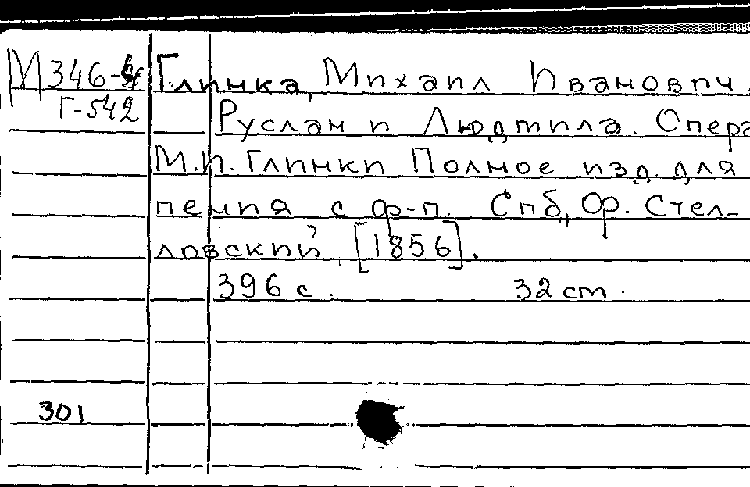 М346-4 Глинка, Михаил Иванович.
Г-542
Руслан и Людмила. Опера
М.И. Глинки Полное изд. для
пения с ф-п. Спб., Фр. Стел-
ловский, [1856].
396 с. 32 cm.
301